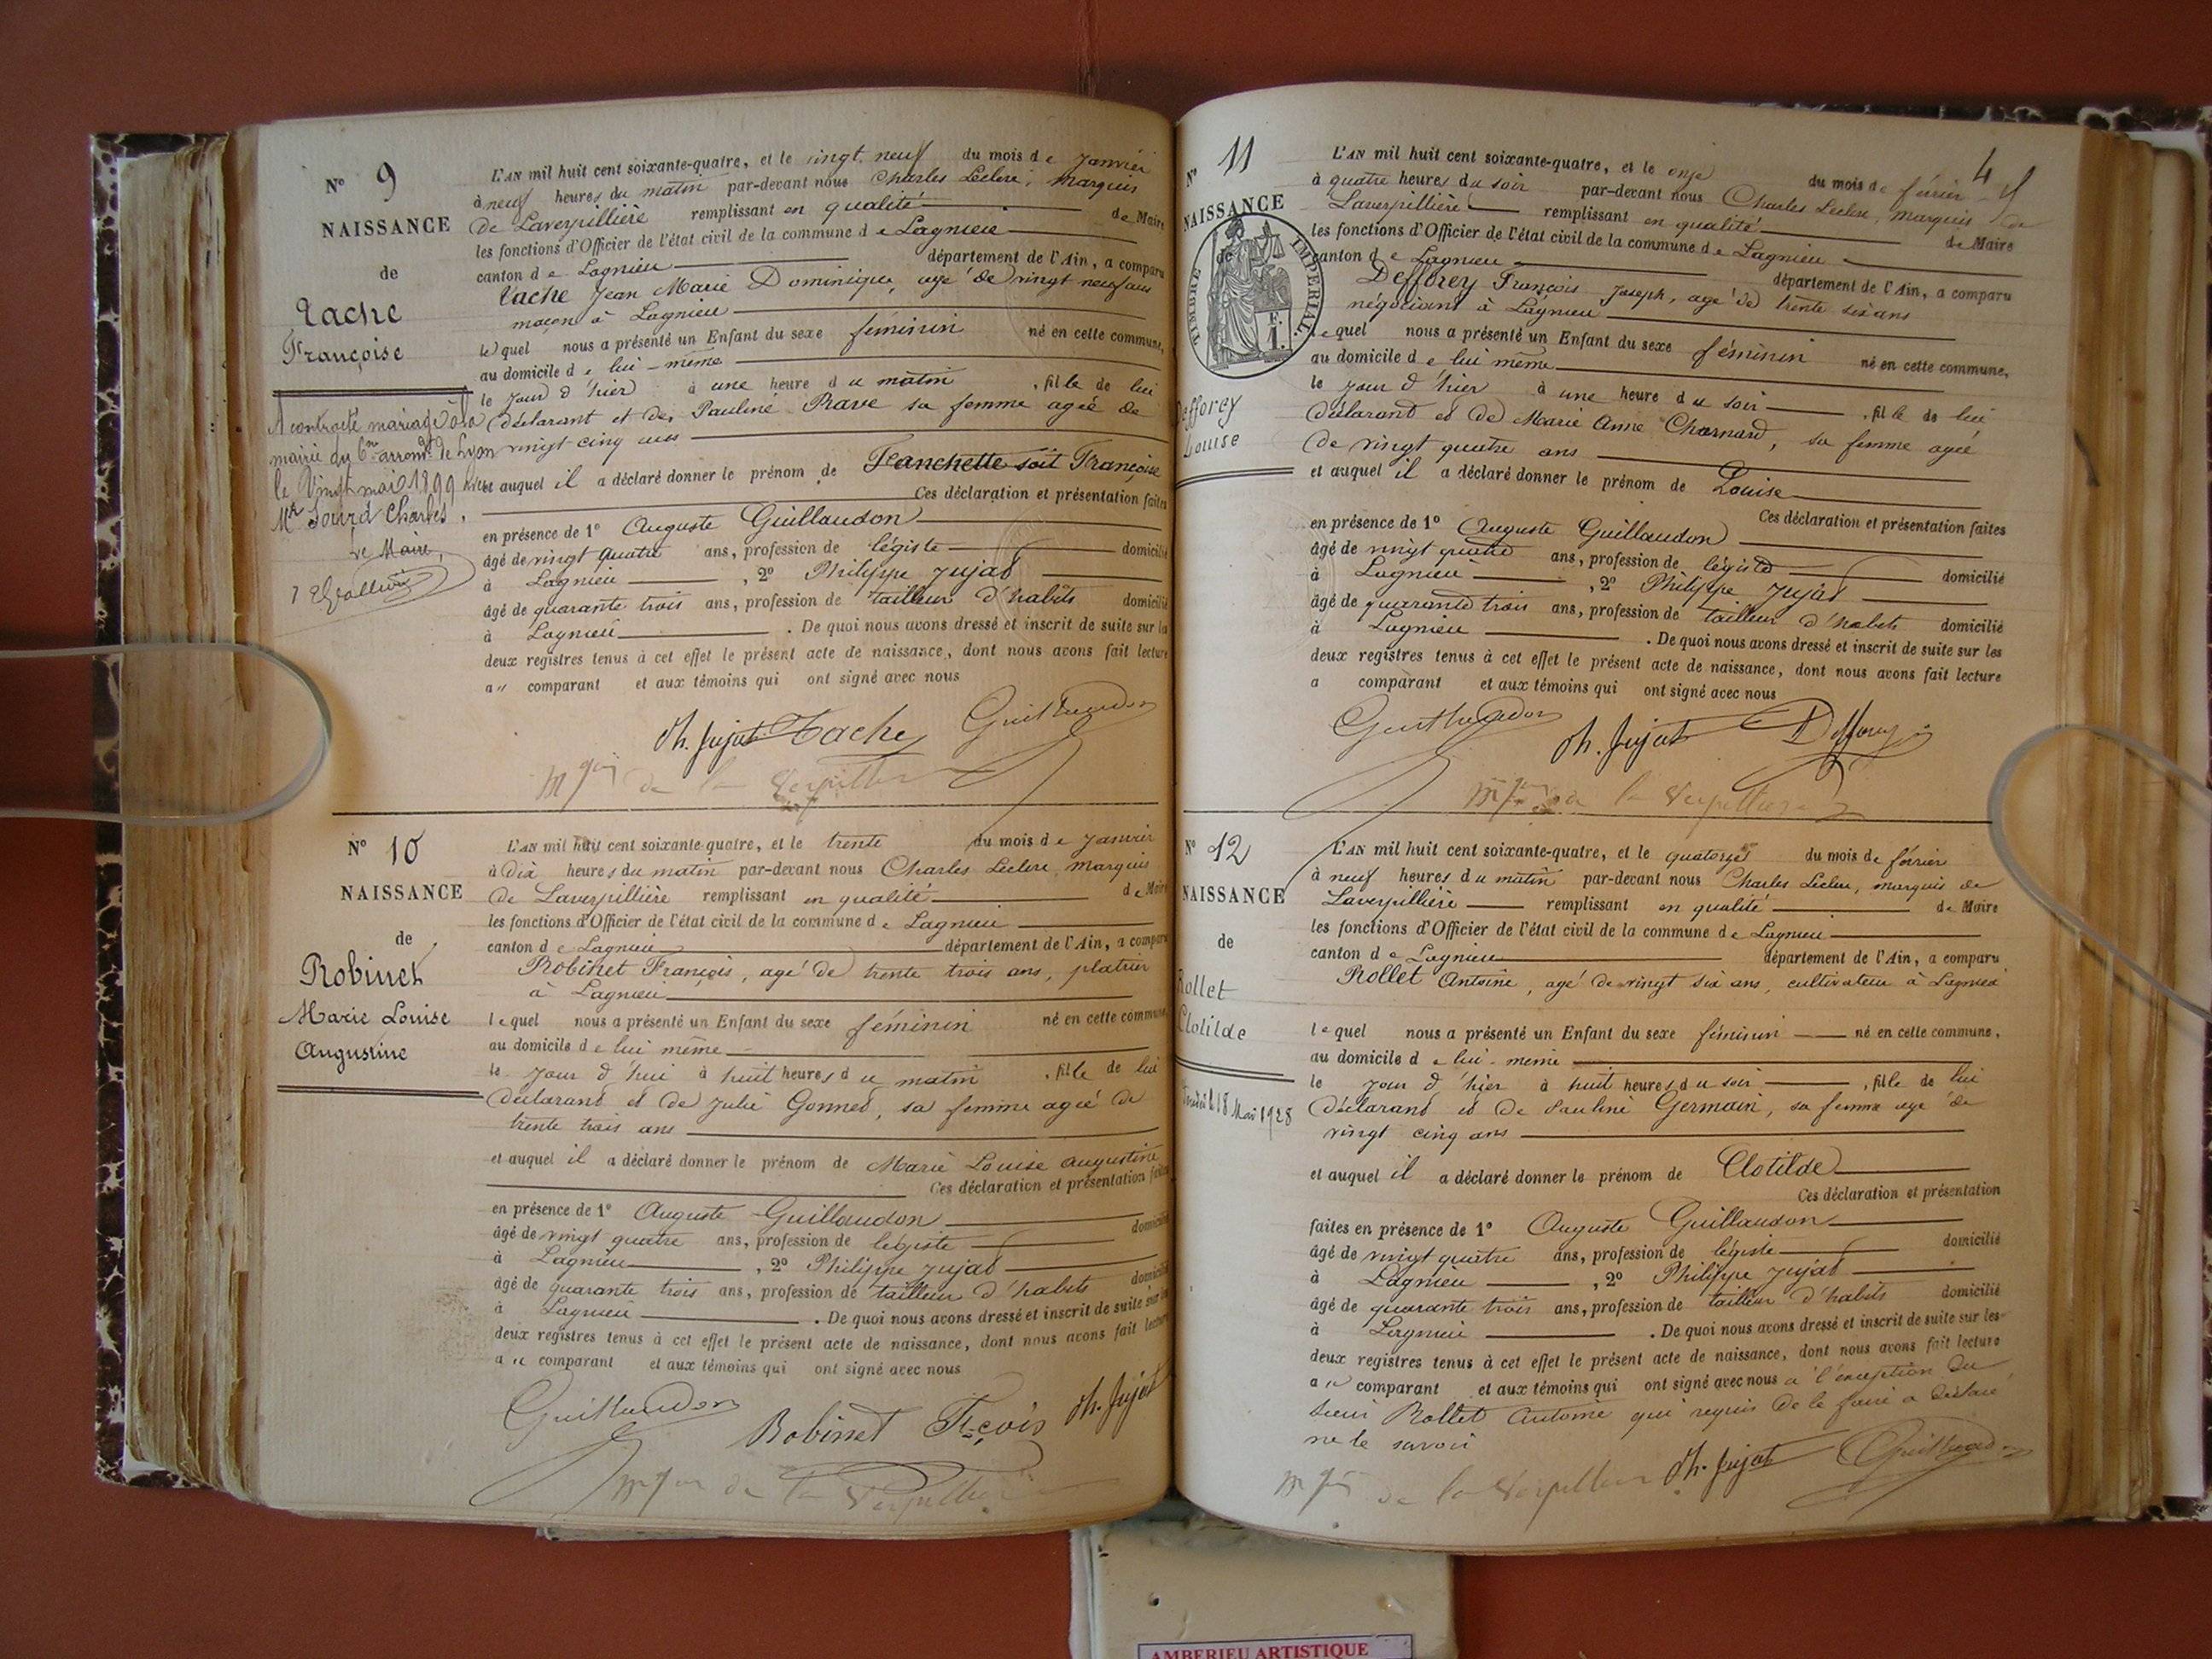 N° 9
NAISSANCE
de
Tache
Françoise
A contracté mariage à la
mairie du 6me arrondt de Lyon
le Vingt mai 1899 avec
Mr Sourd Charles.
Le Maire,
L'AN mil huit cent soixante-quatre, et le vingt neuf du mois de Janvier
à neuf heures du matin par-devant nous Charles Leclerc, marquis
de Laverpillière remplissant en qualité de Maire
les fonctions d'Officier de l'état civil de la commune de Lagnieu
canton de Lagnieu département de l'Ain, a comparu
Tache Jean Marie Dominique, agé de vingt neuf ans
maçon à Lagnieu
lequel nous a présenté un Enfant du sexe féminin né en cette commune,
au domicile de lui-même
le jour d'hier à une heure du matin, fille de lui
déclarant et de, Pauline Rave sa femme agée de
vingt cinq ans
et auquel il a déclaré donner le prénom de Franchette soit Françoise
Ces déclaration et présentation faites
en présence de 1° Auguste Guillaudon
âgé de vingt quatre ans, profession de légiste domicilié
à Lagnieu, 2° Philippe Jujat
âgé de quarante trois ans, profession de tailleur d'habits domicilié
à Lagnieu. De quoi nous avons dressé et inscrit de suite sur la
deux registres tenus à cet effet le présent acte de naissance, dont nous avons fait lecture
au comparant et aux témoins qui ont signé avec nous
Ph. Jujat Tache Guillaudon
Mquis de la Verpillière
N° 10
NAISSANCE
de
Robinet
Marie Louise
Augustine
L'AN mil huit cent soixante-quatre, et le trente du mois de Janvier
à dix heures du matin par-devant nous Charles Leclerc, marquis
de Laverpillière remplissant en qualité de Maire
les fonctions d'Officier de l'état civil de la commune de Lagnieu
canton de Lagnieu département de l'Ain, a comparu
Robinet François, agé de trente trois ans, platrier
à Lagnieu
lequel nous a présenté un Enfant du sexe féminin né en cette commune,
au domicile de lui même
le jour d'hui à huit heures du matin, fille de lui
déclarant et de Julie Gonnet, sa femme agée de
trente trois ans
et auquel il a déclaré donner le prénom de Marie Louise Augustine
Ces déclaration et présentation faites
en présence de 1° Auguste Guillaudon
âgé de vingt quatre ans, profession de légiste domicilié
à Lagnieu, 2° Philippe Jujat
âgé de quarante trois ans, profession de tailleur d'habits domicilié
à Lagnieu. De quoi nous avons dressé et inscrit de suite sur les
deux registres tenus à cet effet le présent acte de naissance, dont nous avons fait lecture
au comparant et aux témoins qui ont signé avec nous
Guillaudon Robinet Fçois Ph. Jujat
Mquis de la Verpillière
4
N° 11
NAISSANCE
de
TIMBRE IMPERIAL.
F.
1.
Defforey
Louise
L'AN mil huit cent soixante-quatre, et le onze du mois de février
à quatre heures du soir par-devant nous Charles Leclerc, marquis de
Laverpillière remplissant en qualité de Maire
les fonctions d'Officier de l'état civil de la commune de Lagnieu
canton de Lagnieu département de l'Ain, a comparu
Defforey François Joseph, agé de trente six ans
négociant à Lagnieu
lequel nous a présenté un Enfant du sexe féminin né en cette commune,
au domicile de lui même
le jour d'hier à une heure du soir, fille de lui
déclarant et de Marie Anne Charnard, sa femme agée
de vingt quatre ans
et auquel il a déclaré donner le prénom de Louise
Ces déclaration et présentation faites
en présence de 1° Auguste Guillaudon
âgé de vingt quatre ans, profession de légiste domicilié
à Lagnieu, 2° Philippe Jujat
âgé de quarante trois ans, profession de tailleur d'habits domicilié
à Lagnieu. De quoi nous avons dressé et inscrit de suite sur les
deux registres tenus à cet effet le présent acte de naissance, dont nous avons fait lecture
a comparant et aux témoins qui ont signé avec nous
Guillaudon Ph. Jujat Defforey
Mquis de la Verpillière
N° 12
NAISSANCE
de
Rollet
Clotilde
18 Mai 1928
L'AN mil huit cent soixante-quatre, et le quatorze du mois de février
à neuf heures du matin par-devant nous Charles Leclerc, marquis de
Laverpillière remplissant en qualité de Maire
les fonctions d'Officier de l'état civil de la commune de Lagnieu
canton de Lagnieu département de l'Ain, a comparu
Rollet Antoine, agé de vingt six ans, cultivateur à Lagnieu
lequel nous a présenté un Enfant du sexe féminin né en cette commune,
au domicile de lui-même
le jour d'hier à huit heures du soir, fille de lui
déclarant et de Pauline Germain, sa femme agé de
vingt cinq ans
et auquel il a déclaré donner le prénom de Clotilde
Ces déclaration et présentation
faites en présence de 1° Auguste Guillaudon
âgé de vingt quatre ans, profession de légiste domicilié
à Lagnieu, 2° Philippe Jujat
âgé de quarante trois ans, profession de tailleur d'habits domicilié
à Lagnieu. De quoi nous avons dressé et inscrit de suite sur les
deux registres tenus à cet effet le présent acte de naissance, dont nous avons fait lecture
au comparant et aux témoins qui ont signé avec nous à l'exception du
sieur Rollet Antoine qui requis de le faire a déclaré
ne le savoir
Mquis de la Verpillière Ph. Jujat Guillaudon
AMBERIEU ARTISTIQUE